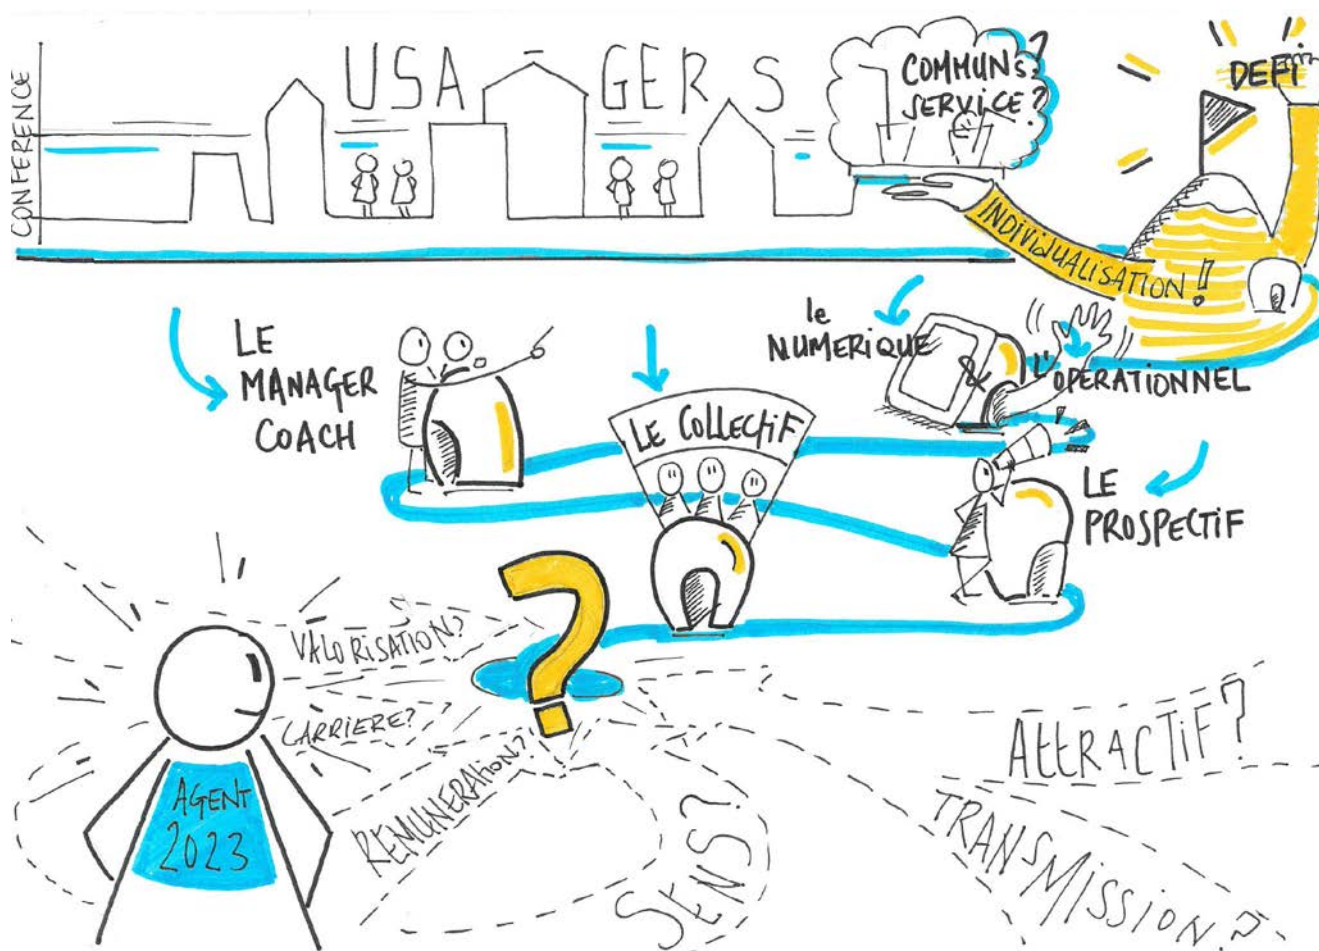 CONFERENCE
USAGERS
COMMUNS?
SERVICE?
DEFi
INDIViDUALISATION!
LE
MANAGER
COACH
LE COLLECTiF
le
NUMERIQUE
L'OPERATIONNEL
LE
PROSPECTiF
VALORISATION?
CARRIERE?
REMUNERATION?
SENS?
ATTRACTiF?
TRANSMiSSiON?
AGENT
2023